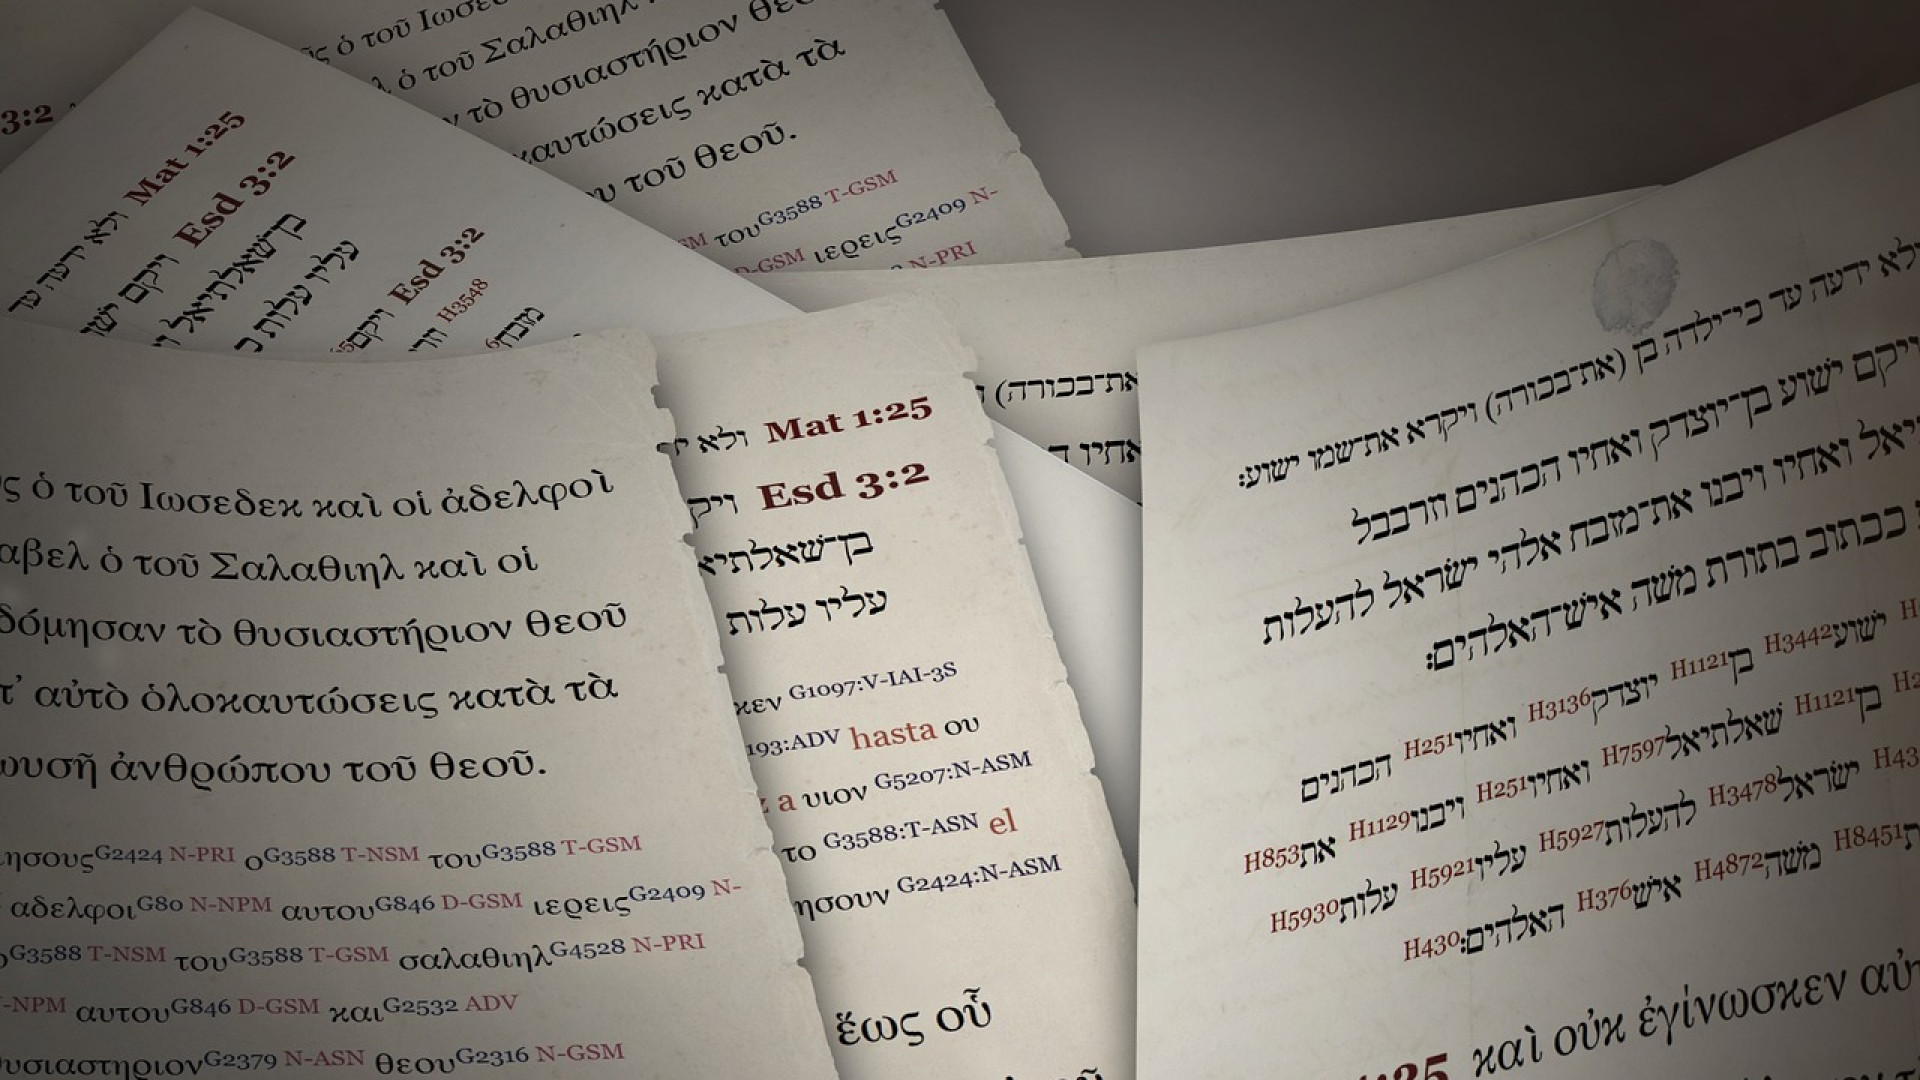 3:2
ὁ τοῦ
ὁ τοῦ Σαλαθιηλ
τὸ θυσιαστήριον
κατὰ τὰ
τοῦ θεοῦ.
τουG3588 T-GSM
D-GSM ιερειςG2409 N-
N-PRI
Mat 1:25 ולא ידעה עד
Esd 3:2 ויקם
בן־שאלתיאל
עליו עלות
Esd 3:2 ויקם
H3548
מזבח
ὁ τοῦ Ιωσεδεκ καὶ οἱ ἀδελφοὶ
ὁ τοῦ Σαλαθιηλ καὶ οἱ
τὸ θυσιαστήριον θεοῦ
αὐτὸ ὁλοκαυτώσεις κατὰ τὰ
ἀνθρώπου τοῦ θεοῦ.
ησουςG2424 N-PRI οG3588 T-NSM τουG3588 T-GSM
αδελφοιG80 N-NPM αυτουG846 D-GSM ιερειςG2409 N-
οG3588 T-NSM τουG3588 T-GSM σαλαθιηλG4528 N-PRI
-NPM αυτουG846 D-GSM καιG2532 ADV
υσιαστηριονG2379 N-ASN θεουG2316 N-GSM
Mat 1:25 ולא
Esd 3:2
בן־שאלתיא
עליו עלות
κεν G1097:V-IAI-3S
193:ADV hasta ου
a υιον G5207:N-ASM
το G3588:T-ASN el
ησουν G2424:N-ASM
ἕως οὗ
את־בכורה)
אחיו
ולא ידעה עד כי־ילדה בן (את־בכורה) ויקרא את־שמו ישוע׃
ויקם ישוע בן־יוצדק ואחיו הכהנים וזרבבל
ואחיו ויבנו את־מזבח אלהי ישראל להעלות
ככתוב בתורת משה איש־האלהים׃
ישועH3442 בןH1121 יוצדקH3136 ואחיוH251 הכהנים
בןH1121 שאלתיאלH7597 ואחיוH251 ויבנוH1129 אתH853
ישראלH3478 להעלותH5927 עליוH5921 עלותH5930
H8451 משהH4872 אישH376 האלהים׃H430
καὶ οὐκ ἐγίνωσκεν